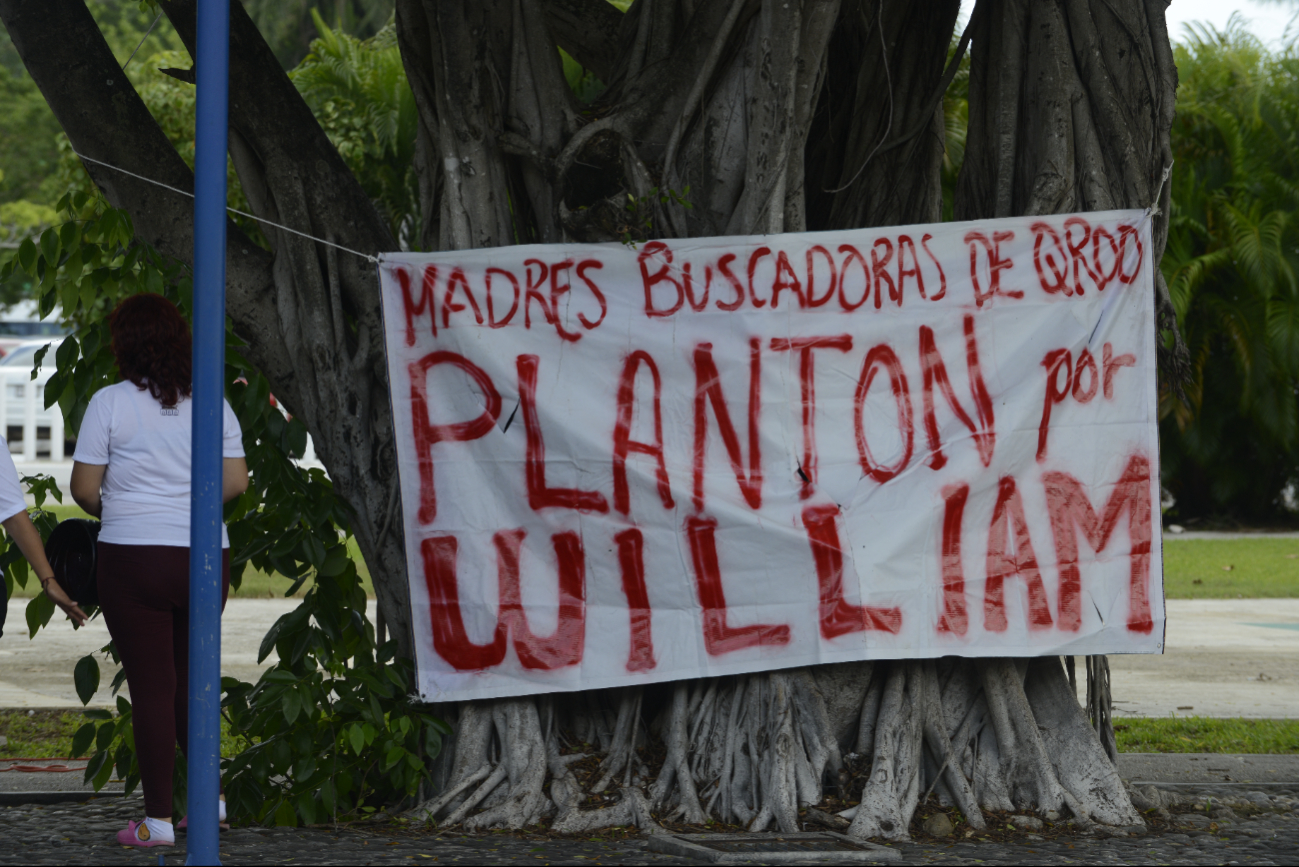 MADRES BUSCADORAS DE QROO
PLANTON por
WILLIAM